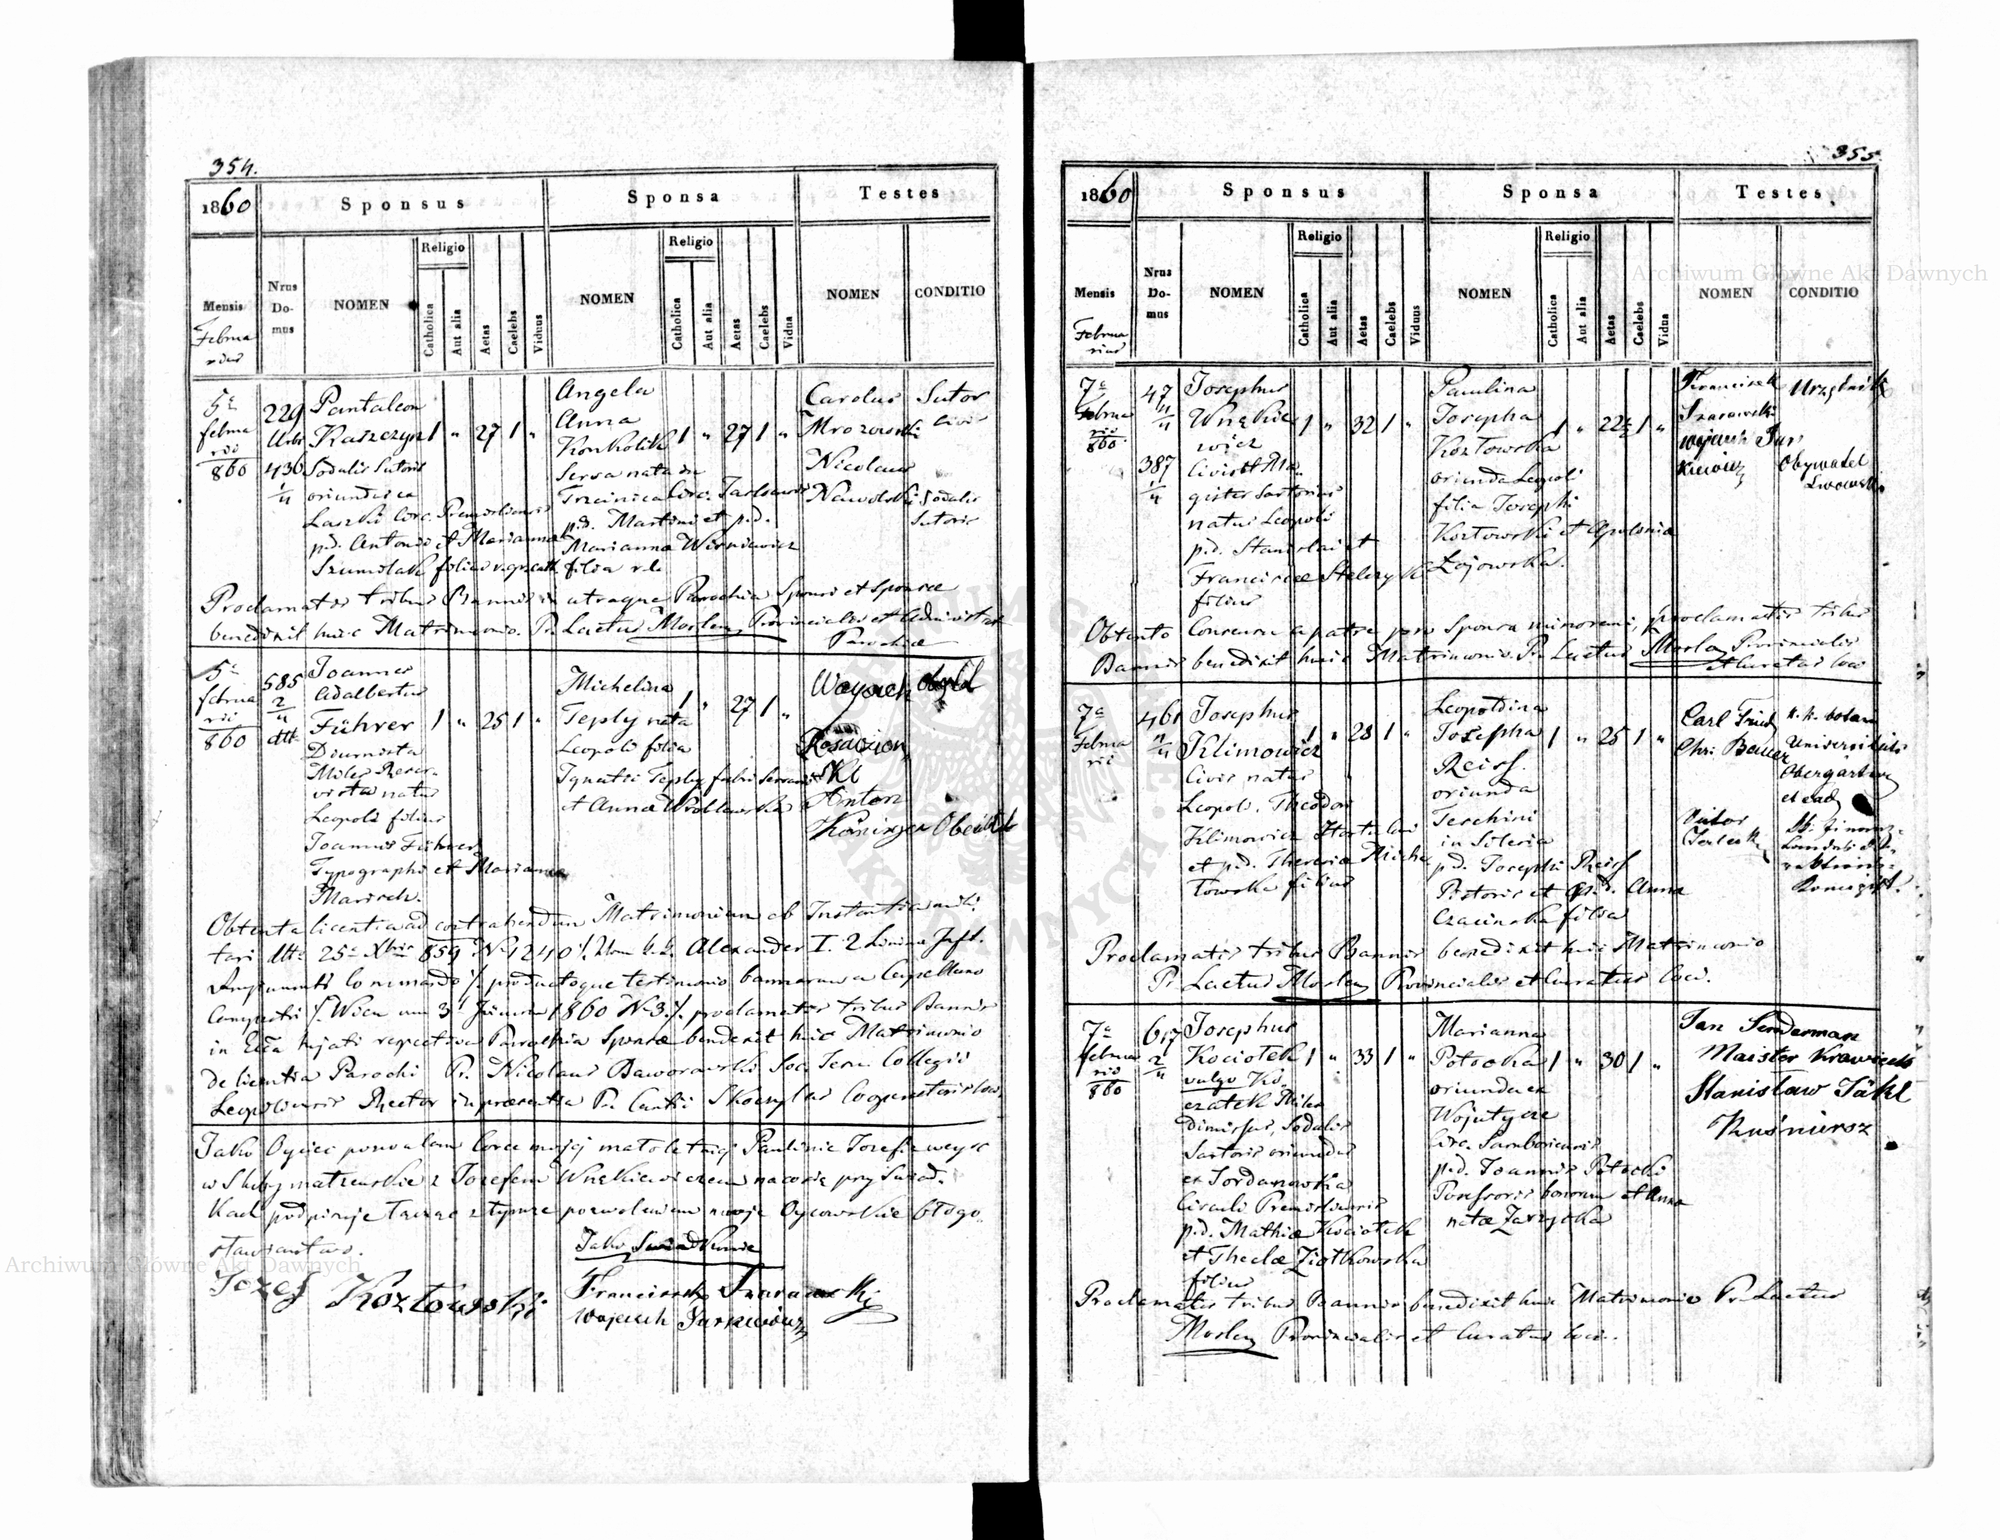 354.
1860
Sponsus
Sponsa
Testes
Mensis
Februarius
Nrus Domus
NOMEN
Religio
Catholica
Aut alia
Aetas
Caelebs
Viduus
NOMEN
Religio
Catholica
Aut alia
Aetas
Caelebs
Vidua
NOMEN
CONDITIO
5a
februa
rii
860
229
Urbi
436
1/4
Pantaleon
Kaszczysz 1 " 27 1 "
Sodalis Sutoris
oriundus ex
Laszki Circ. Premisliensis
p.d. Antonii et Marianna
Szumilak filius r.gr.cath.
Angela
Anna
Konkolik 1 " 27 1 "
Serva nata in
Trzcinica Circ. Jasloensis
p.d. Martini et p.d.
Marianna Wisniewicz
filia r.l.
Carolus
Mrozowski
Nicolaus
Nawolski
Sutor
civis
Sodalis
Sutoris
Proclamatis tribus Bannis in utraque Parochia Sponsi et Sponsae
benedixit huic Matrimonio. Pr. Laetus Mosler Provincialis et Administrator
Parochiae
5a
februa
rii
860
585
2/4
Joannes
Adalbertus
Führer 1 " 25 1 "
Diurnista
Miles Reser-
vista natus
Leopoli filius
Joannis Führer
Typographi et Marianna
Marisch.
Michelina
Teply nata 1 " 27 1 "
Leopoli filia
Ignatii Teply fabri serrarii
et Anna Wroblewska
Woyciech
Rosaczion
ski
Anton
Köninger
Obenita licentia ad contrahendum Matrimonium ab Instantia mili-
tari dtto 25a Xbris 859 No 1240 Alexander I. 2 Linien Inft.
Regiments Commando productoque testimonio bannorum a Capellano
Campestri Wien am 3t Jänner 1860 No 3 proclamatis tribus Bannis
in Ecca hujati respective Parochia Sponsae benedixit huic Matrimonio
de licentia Parochi Pr. Nicolaus Baworowski Soc. Jesu Collegii
Leopoliensis Rector in praesentia Pr. Cantii Skoczylas Cooperatoris loci.
Jako Oyciec pozwalam Corce mojej małoletniej Paulinie Jozefie weysć
w Sluby matzenskie z Jozefem Wnękiewiczem na co się przy Swiad-
kach podpisuje łącząc z tymże pozwoleniem moje Oycowskie błogo-
sławienstwo.
Jozef Kozłowski
Jako Swiadkowie
Franciszek Szarawski
Wojciech Jurkiewicz
355
1860
Sponsus
Sponsa
Testes
Mensis
Februarius
Nrus Domus
NOMEN
Religio
Catholica
Aut alia
Aetas
Caelebs
Viduus
NOMEN
Religio
Catholica
Aut alia
Aetas
Caelebs
Vidua
NOMEN
CONDITIO
7a
februa
rii
860
47
4/4
387
1/4
Josephus
Wnękie 1 " 32 1 "
wicz
Civis et Ma-
gister Sartorius
natus Leopoli
p.d. Stanislai et
Franciscae Stelczyk
filius
Paulina
Josepha 1 " 22½ 1 "
Kozłowska
oriunda Leopoli
filia Josephi
Kozłowski et Apolonia
Zajowska.
Franciszek
Szarawski
Wojciech Jur
kiewicz
Urzędnik
Obywatel
Lwowski
Obtento Consensu a patre pro Sponsa minorenni, proclamatis tribus
Bannis benedixit huic Matrimonio. Pr. Laetus Mosler Provincialis
et Curatus loci
7a
Februa
rii
461
4/4
Josephus
Klimowicz 1 " 28 1 "
Civis natus
Leopoli. Theodori
Klimowicz Hortulani
et p.d. Theresia Micha
łowska filius
Leopoldina
Josepha 1 " 25 1 "
Reiss.
oriunda
Teschini
in Silesia
p.d. Josephi Reiss
Pistoris et p.d. Anna
Czacinska filia
Carl Fried.
Chri. Bauer
k. k. botan
Universitäts
Obergärtner
Proclamatis tribus Bannis benedixit huic Matrimonio
Pr. Laetus Mosler Provincialis et Curatus loci.
7a
februa
rii
860
617
2/4
Josephus
Kociołek 1 " 33 1 "
vulgo Ko-
czatek Miles
dimissus, Sodalis
Sartoris oriundus
ex Jordanowska
Circuli Premisliensis
p.d. Mathia Kociołek
et Theclae Ziołkowska
filius
Marianna
Potocka 1 " 30 1 "
oriunda ex
Wojutycze
Circ. Samboriensis
p.d. Joannis Potocki
Possessoris bonorum et Anna
nata Zarzycka
Jan Senderman
Maister Krawiecki
Stanisław Jäkl
Kuśnirsz
Proclamatis tribus Bannis benedixit huic Matrimonio Pr. Laetus
Mosler Provincialis et Curatus loci.
Archiwum Główne Akt Dawnych
Archiwum Główne Akt Dawnych